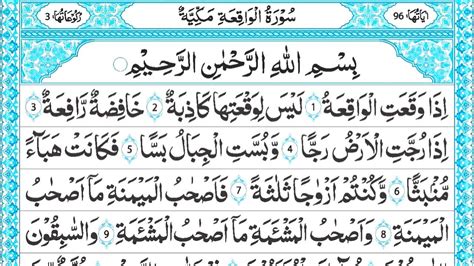 اٰيَاتُهَا 96 سُوْرَةُ الْوَاقِعَةِ مَكِّيَّةٌ رُكُوْعَاتُهَا 3
بِسْمِ اللهِ الرَّحْمٰنِ الرَّحِيْمِ
اِذَا وَقَعَتِ الْوَاقِعَةُ 1 لَيْسَ لِوَقْعَتِهَا كَاذِبَةٌ 2 خَافِضَةٌ رَّافِعَةٌ 3
اِذَا رُجَّتِ الْاَرْضُ رَجًّا 4 وَّبُسَّتِ الْجِبَالُ بَسًّا 5 فَكَانَتْ هَبَآءً
مُّنْۢبَثًّا 6 وَّكُنْتُمْ اَزْوَاجًا ثَلٰثَةً 7 فَاَصْحٰبُ الْمَيْمَنَةِ مَاۤ اَصْحٰبُ
الْمَيْمَنَةِ 8 وَاَصْحٰبُ الْمَشْئَمَةِ مَاۤ اَصْحٰبُ الْمَشْئَمَةِ 9 وَالسّٰبِقُوْنَ